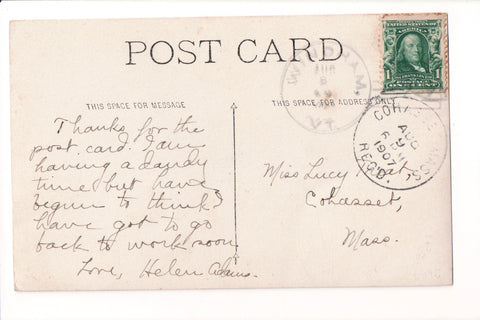 POST CARD
THIS SPACE FOR MESSAGE
THIS SPACE FOR ADDRESS ONLY
Thanks for the
post card. I am
having a dandy
time but have
begun to think I
have got to go
back to work soon.
Love, Helen Adams.
Miss Lucy
Cohasset,
Mass.
WINDHAM,
AUG
VT.
COHASSET
AUG
9
1907
REC'D.
1
1